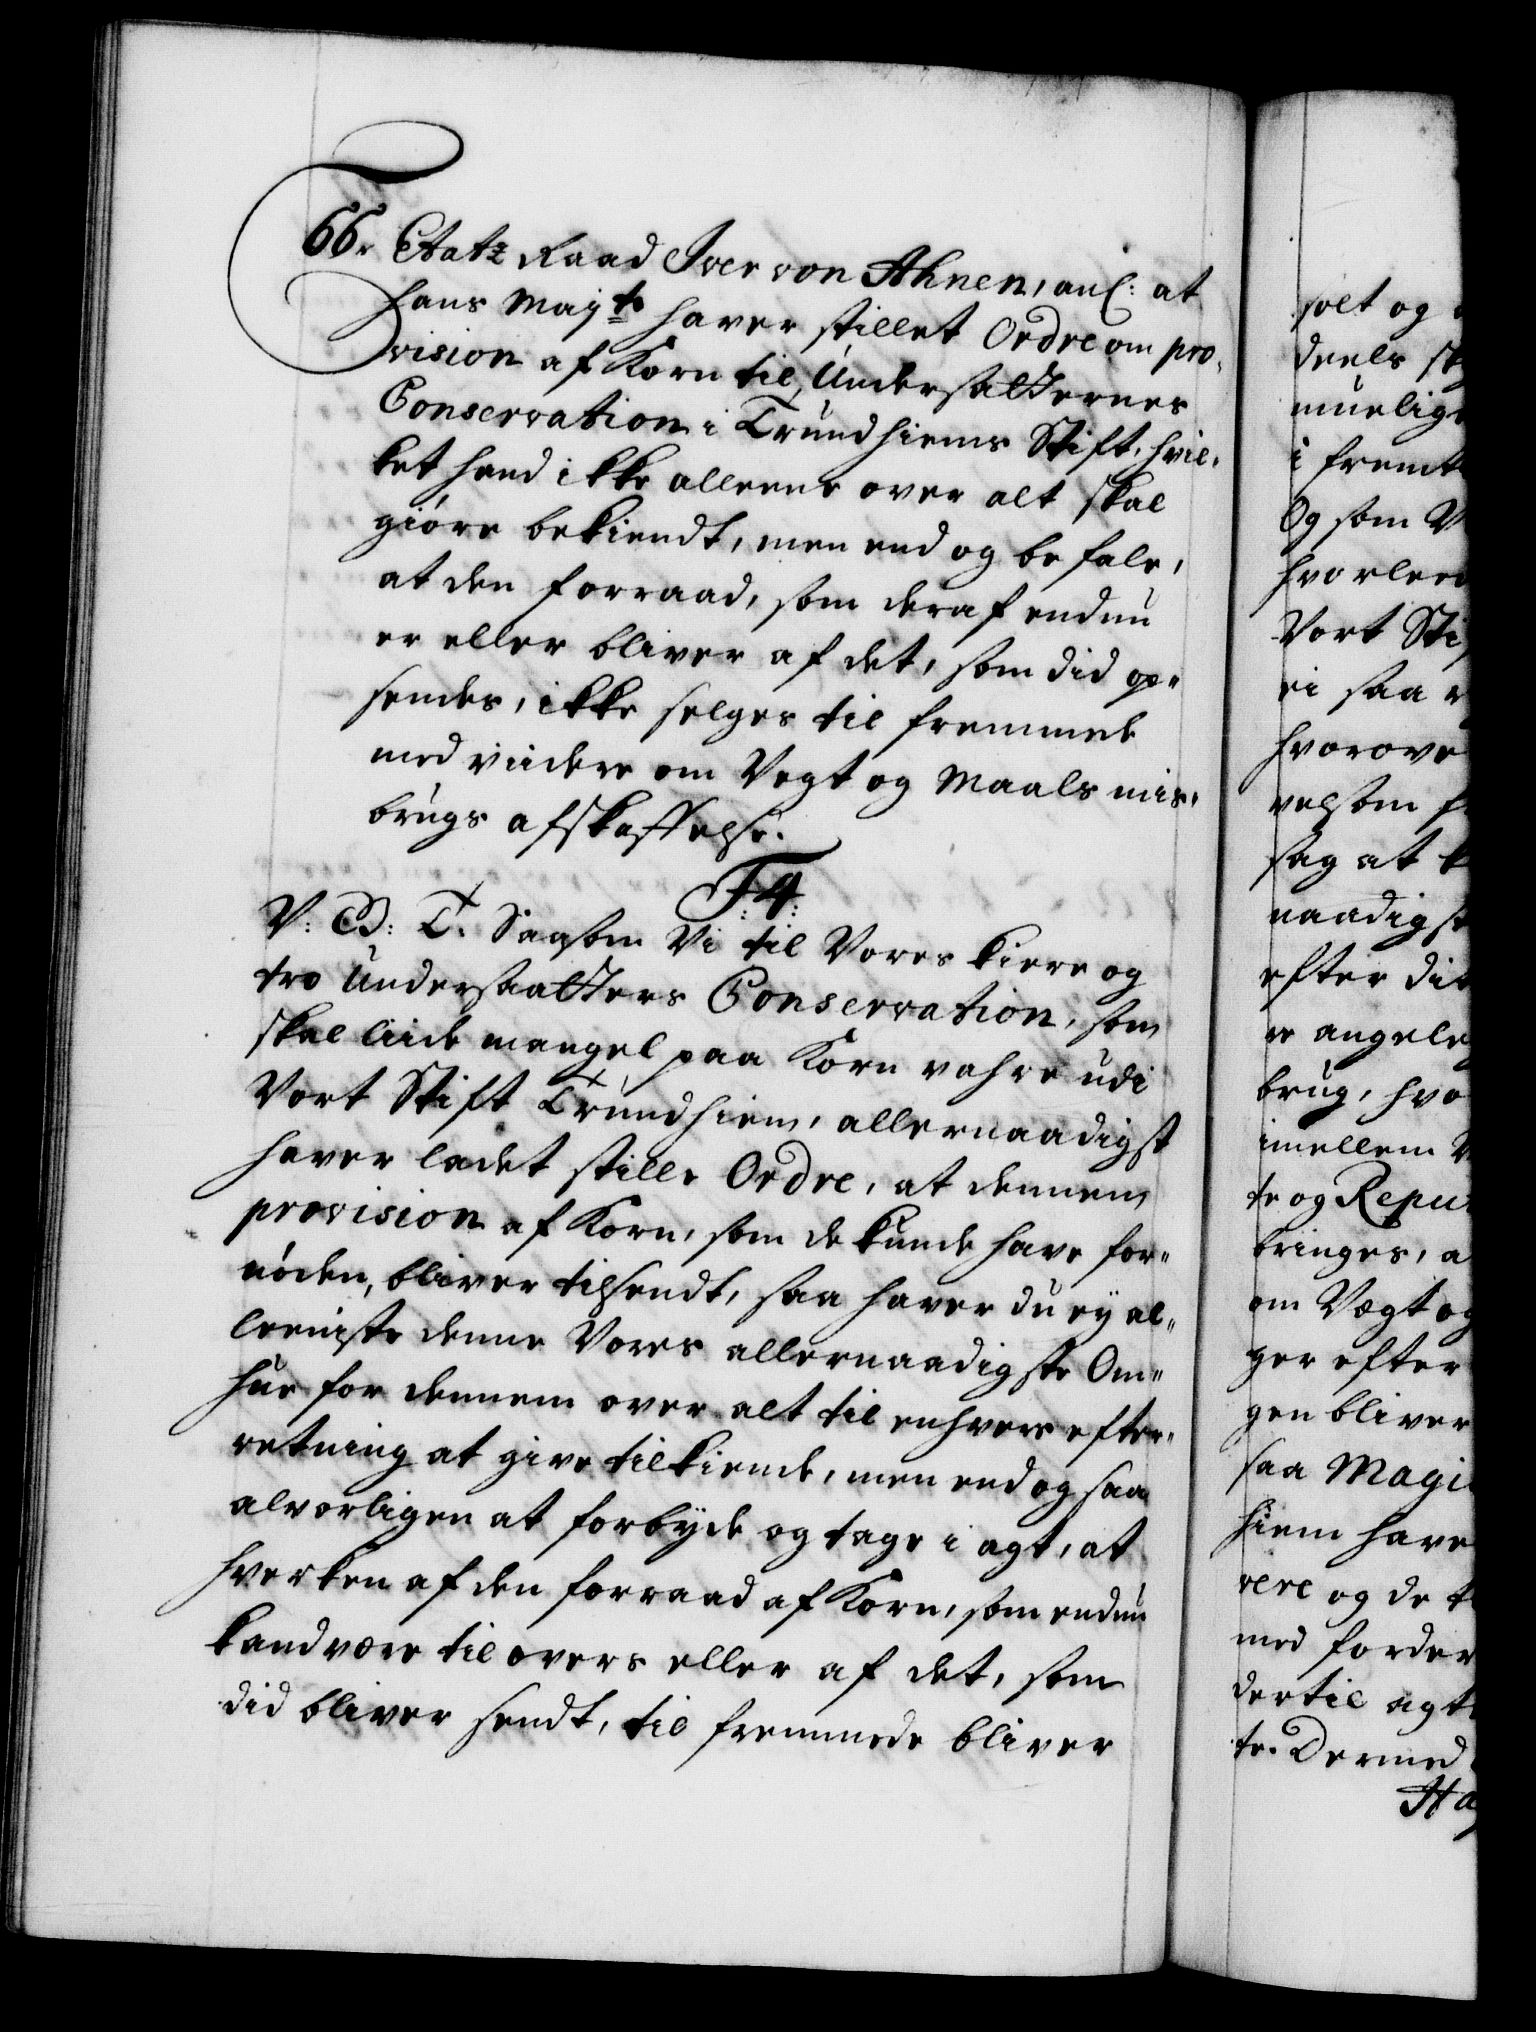 66. Etatz Raad Iver von Ahnen, anl: at
hans Majts haver stillet Ordre om pro-
vision af Korn til Undersaatternes
Conservation i Trundhiems Stift, hvil-
ket hand ikke alleene over alt skal
giøre bekiendt, men end og befale,
at den forraad, som deraf endnu
er eller bliver af det, som did op-
sendes, ikke selges til fremmede
med viidere om Vegt og Maals mis-
brugs afskaffelse.
F:4:
V: G: T. Saasom Vi til Vores kiere og
tro Undersaatters Conservation, som
skal liide mangel paa Korn vahre udi
Vort Stift Trundhiem, allernaadigst
haver ladet stille Ordre, at dennem
provision af Korn, som de kunde have for-
nøden, bliver tilsendt, saa haver du ey al-
leeniste denne Vores allernaadigste Om-
hue for dennem over alt til enhvers efter-
retning at give tilkiende, men end og saa
alvorligen at forbyde og tage i agt, at
hverken af den forraad af Korn, som endnu
kand være til overs eller af det, som
did bliver sendt, til fremmede bliver
solt og
deels
muelig
i fremt
Og som V
hvorleed
Vort Sti
ei saa
hvorove
velsom
sag at
naadigst
efter di
re angele
brug, hvo
imellem
te og Repu
bringes, a
om Vægt og
ger efter
gen bliver
saa Magi
hiem have
rere og de
med forder
dertil agt
te. Dermed
Ha